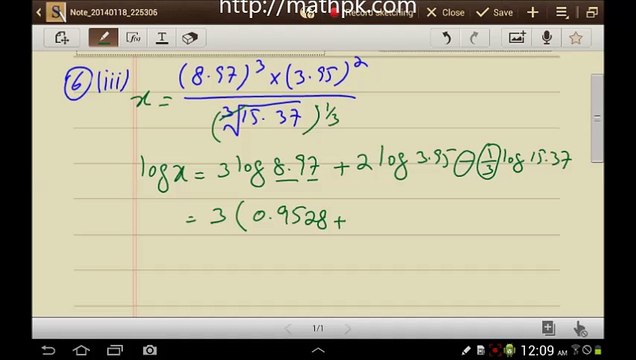 http://mathpk.com
Note_20140118_225306
Record sketching
Close
Save
6 (iii) x = (8.97)³ × (3.95)² / (∛15.37)^1/3
log x = 3 log 8.97 + 2 log 3.95 − 1/3 log 15.37
= 3 ( 0.9528 +
1/1
12:09 AM